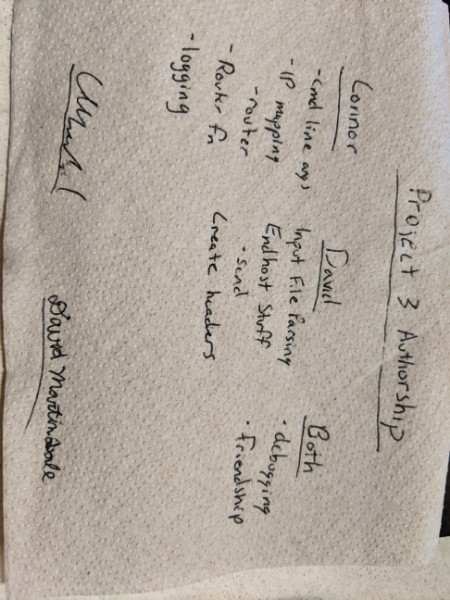 Project 3 Authorship
Connor
- cmd line args
- IP mapping
- router
- Router fn
- logging
David
Input File Parsing
Endhost Stuff
- send
Create headers
Both
- debugging
- friendship
David Martindale